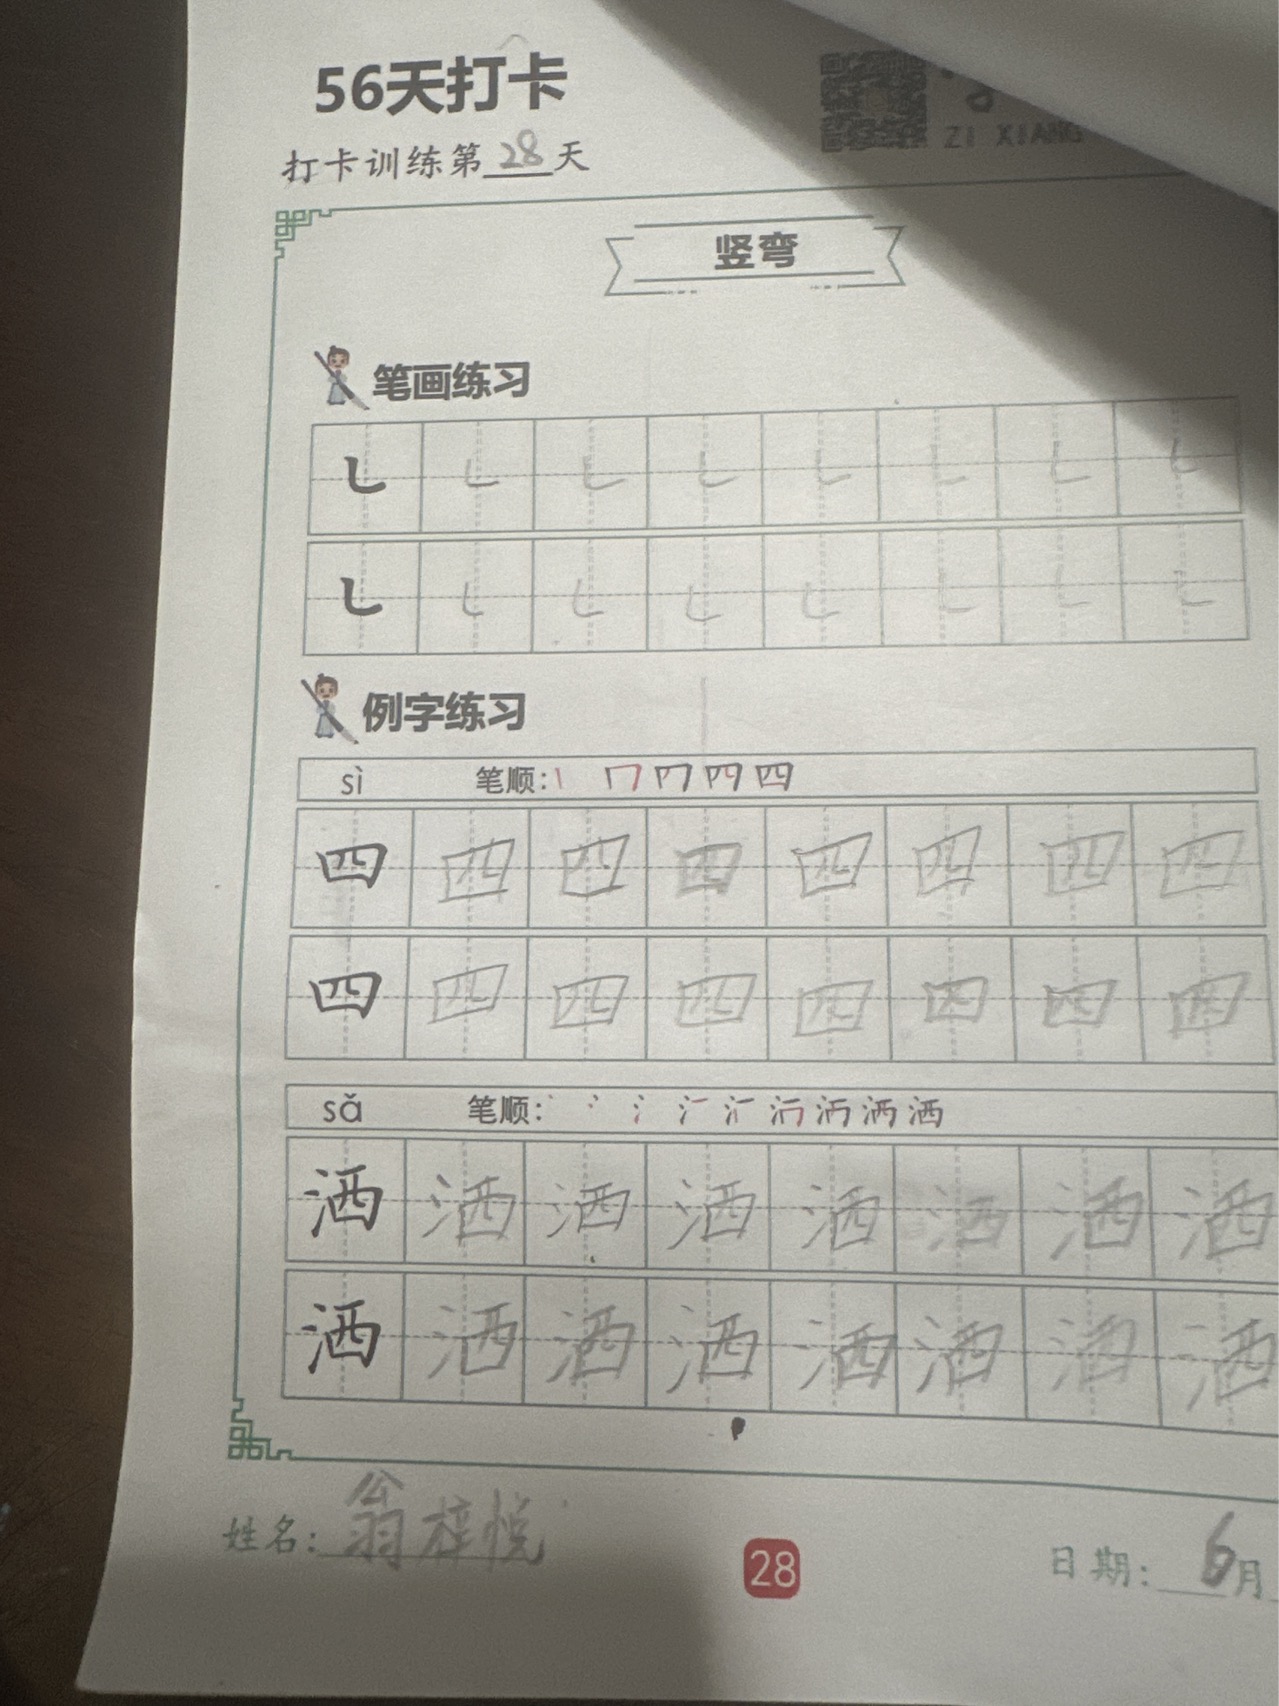 56天打卡
打卡训练第28天
ZI XIANG
竖弯
笔画练习
㇄ ㇄ ㇄ ㇄ ㇄ ㇄ ㇄ ㇄
㇄ ㇄ ㇄ ㇄ ㇄ ㇄ ㇄ ㇄
例字练习
sì 笔顺: 四
四 四 四 四 四 四 四 四
四 四 四 四 四 四 四 四
sǎ 笔顺: 洒
洒 洒 洒 洒 洒 洒 洒 洒
洒 洒 洒 洒 洒 洒 洒 洒
姓名: 翁梓悦
28
日期: 6月